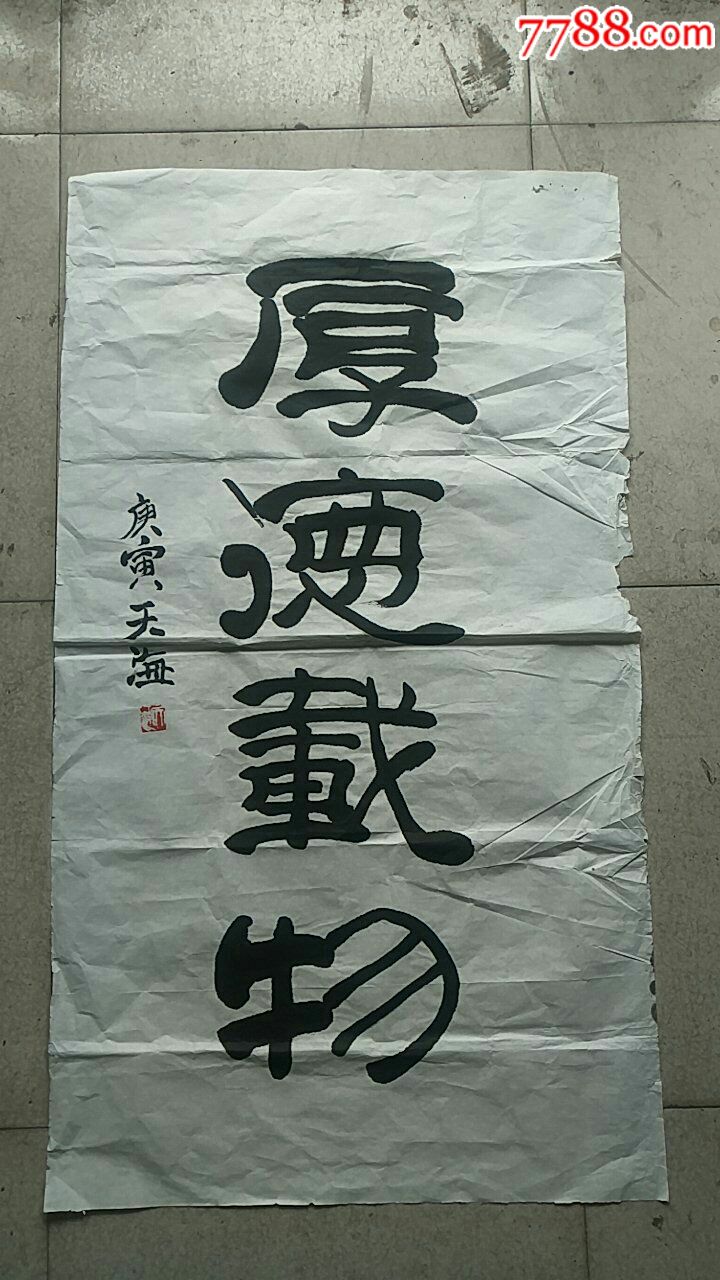 7788.com
厚德載物
庚寅天海